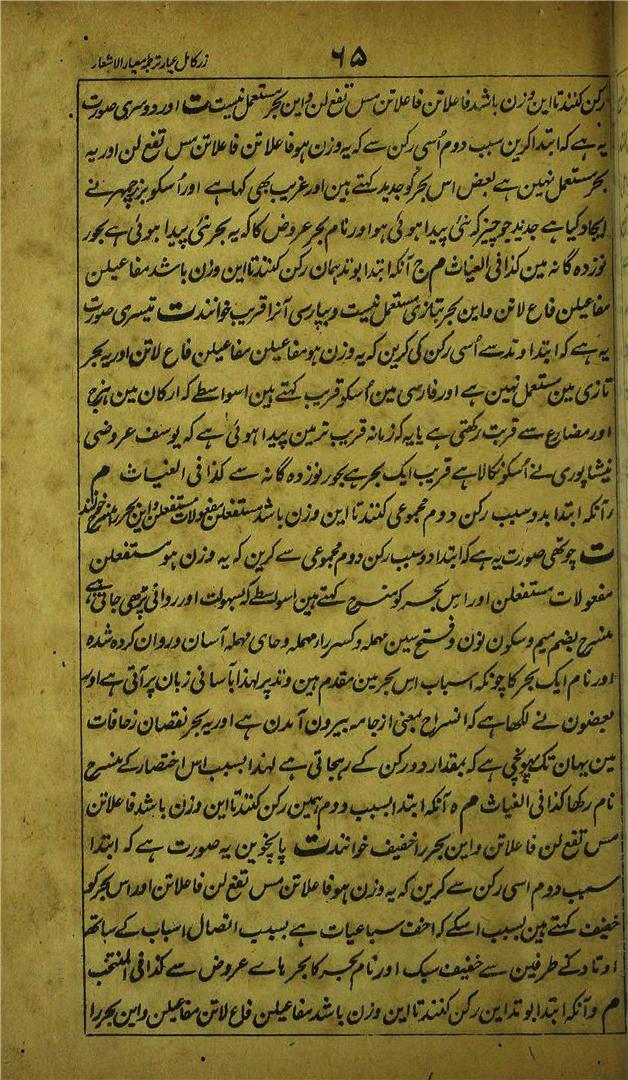 زر کامل عیار ترجمۂ معیار الاشعار
۶۵
رکن کنند تا این وزن باشد فاعلاتن فاعلاتن مس تفع لن و این بحر مستعمل نیست ت اور دوسری صورت
یہ ہے کہ ابتدا کرین سبب دوم اُسی رکن سے کہ یہ وزن ہو فاعلاتن فاعلاتن مس تفع لن اور یہ
بحر مستعمل نہین ہے بعض اس بحر کو جدید کہتے ہین اور غریب بھی کہا ہے اور اُسکو بزرچمہر نے
ایجاد کیا ہے جدید جو چیز کہ نئی پیدا ہوئی ہو اور نام بحر عروض کا کہ یہ بحر نئی پیدا ہوئی ہے بحور
نوزدہ گانہ مین کذا فی الغیاث م ج آنکہ ابتدا بوتد ہمان رکن کنند تا این وزن باشد مفاعیلن
مفاعیلن فاع لاتن و این بحر بتازی مستعمل نیست و بپارسی آنرا قریب خوانند ت تیسری صورت
یہ ہے کہ ابتدا وتد سے اُسی رکن کی کرین کہ یہ وزن ہو مفاعیلن مفاعیلن فاع لاتن اور یہ بحر
تازی مین مستعمل نہین ہے اور فارسی مین اُسکو قریب کہتے ہین اسواسطے کہ ارکان مین ہزج
اور مضارع سے قربت رکھتی ہے یا یہ کہ زمانہ قریب تر مین پیدا ہوئی ہے کہ یوسف عروضی
نیشاپوری نے اُسکو نکالا ہے قریب ایک بحر ہے بحور نوزدہ گانہ سے کذا فی الغیاث م
ر آنکہ ابتدا بدو سبب رکن دوم مجموعی کنند تا این وزن باشد مستفعلن مفعولات مستفعلن و این بحر را منسرح خوانند
ت چوتھی صورت یہ ہے کہ ابتدا دو سبب رکن دوم مجموعی سے کرین کہ یہ وزن ہو مستفعلن
مفعولات مستفعلن اور اس بحر کو منسرح کہتے ہین اسواسطے کہ بسہولت اور روانی پڑھی جاتی ہے
منسرح بضم میم و سکون نون و فتح سین مہملہ و کسر راء مہملہ و حای مہملہ آسان و روان کردہ شدہ
اور نام ایک بحر کا چونکہ اسباب اس بحر مین مقدم ہین وتد پر لہذا بآسانی زبان پر آتی ہے اور
بعضون نے لکھا ہے کہ انسراح بمعنی از جامہ بیرون آمدن ہے اور یہ بحر نقصان زحافات
مین یہان تک پہونچی ہے کہ بمقدار دو رکن کے رہجاتی ہے لہذا بسبب اس اختصار کے منسرح
نام رکھا کذا فی الغیاث م ہ آنکہ ابتدا بسبب دوم ہمین رکن کنند تا این وزن باشد فاعلاتن
مس تفع لن فاعلاتن و این بحر را خفیف خوانند ت پانچوین یہ صورت ہے کہ ابتدا
سبب دوم اسی رکن سے کرین کہ یہ وزن ہو فاعلاتن مس تفع لن فاعلاتن اور اس بحر کو
خفیف کہتے ہین بسبب اسکے کہ اخف سباعیات ہے بسبب اتصال اسباب کے ساتھ
اوتاد کے طرفین سے خفیف سبک اور نام بحر کا بحر ہاے عروض سے کذا فی المنتخب
م و آنکہ ابتدا بوتد این رکن کنند تا این وزن باشد مفاعیلن فاع لاتن مفاعیلن و این بحر را